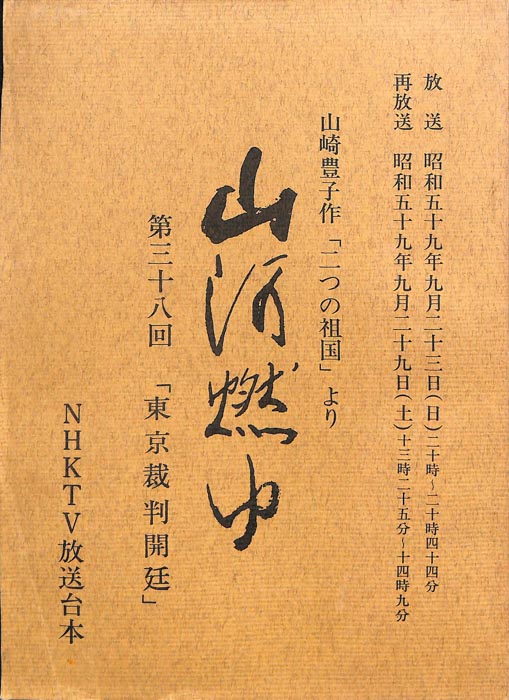 放送 昭和五十九年九月二十三日(日)二十時~二十時四十四分
再放送 昭和五十九年九月二十九日(土)十三時二十五分~十四時九分
山崎豊子作「二つの祖国」より
山河燃ゆ
第三十八回 「東京裁判開廷」
NHKTV放送台本